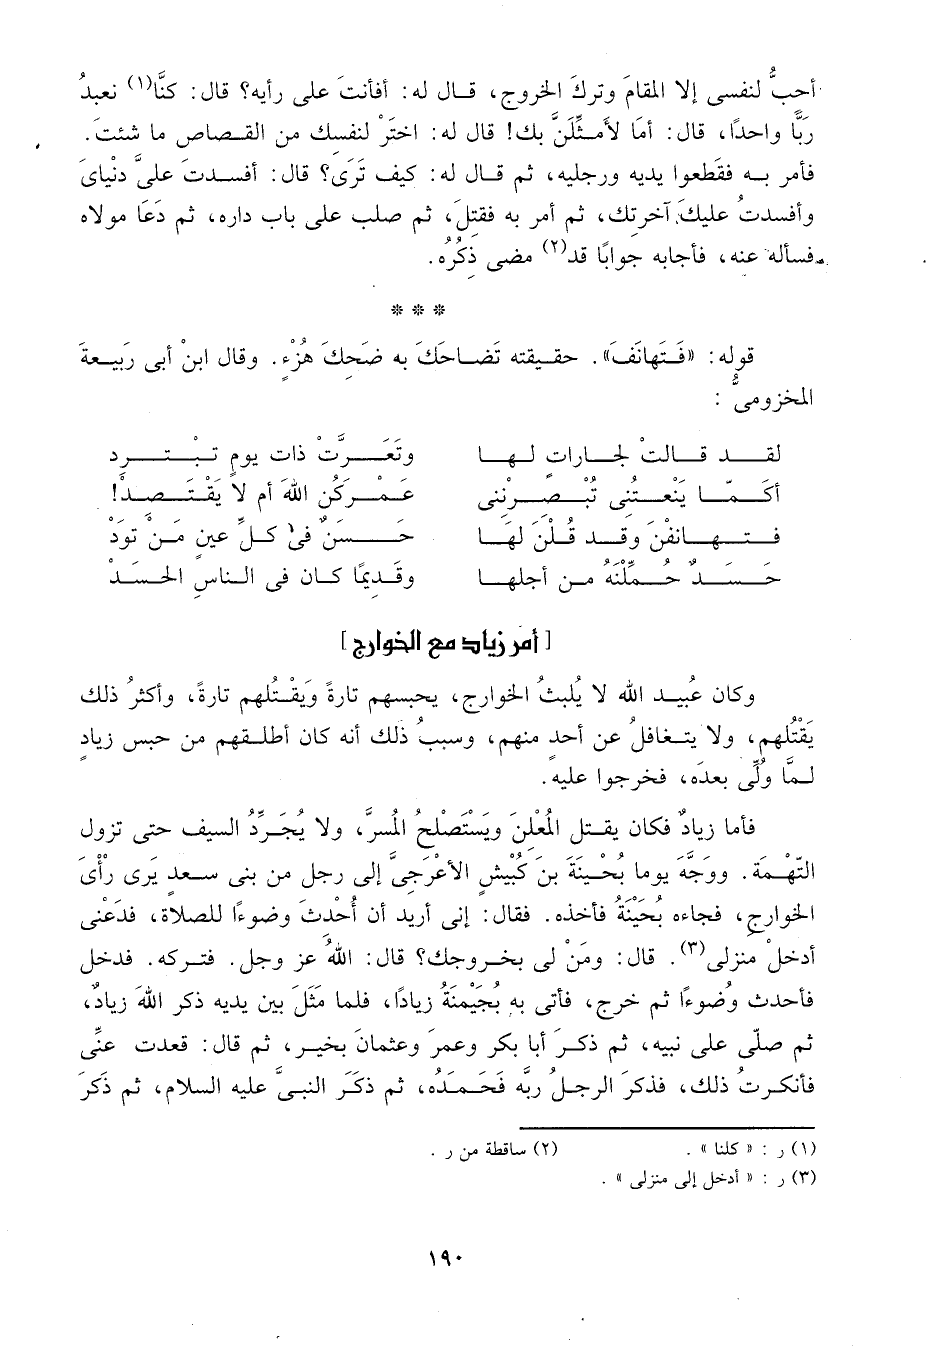 أحبُّ لنفسى إلا المقامَ وتركَ الخروج، قـال له: أفأنتَ على رأيه؟ قال: كنَّا(١) نعبدُ
ربًّا واحدًا، قال: أمَا لأمـثِّلَنَّ بك! قال له: اخترْ لنفسك من القـصاص ما شئتَ.
فأمر بـه فقَطعوا يديه ورجليه، ثم قـال له: كيف تَرَى؟ قال: أفسـدتَ علىَّ دنْياىَ
وأفسدتُ عليكَ آخرتك، ثم أمر به فقتلَ، ثم صلب على باب داره، ثم دَعَا مولاه
فسأله عنه، فأجابه جوابًا قد(٢) مضى ذِكْرُه.
* * *
قوله: «فَـتَهانَفَ». حقيقته تَضاحَكَ به ضَحِكَ هُزْءٍ. وقال ابنْ أبى رَبيـعةَ
المخزومىُّ :
لقـد قـالتْ لجـاراتٍ لـهـا وتَعَـرَّتْ ذات يومٍ تـبْـتـرِدْ
أكَـمَـا يَنْعـتُنى تُبْـصِـرْنَنى عَـمْـرَكُنَّ اللهَ أم لا يَقْـتَـصِـدْ!
فـتـهـانَفْنَ وقـد قُـلْنَ لهـا حَـسَـنٌ فى كـلِّ عينٍ مَـنْ تَودْ
حَـسَـدٌ حُـمِّلْنَهُ مـن أجلِهـا وقَـديمًا كـان فى النـاسِ الحَسَـدْ
[ أمر زياد مع الخوارج ]
وكان عُبيـد الله لا يُلبثُ الخوارج، يحبسهم تارةً ويَقْـتُلهم تارةً، وأكثرُ ذلك
يَقْتُلهم، ولا يتـغافلُ عن أحدٍ منهم، وسببُ ذلك أنه كان أطلـقهم من حبس زيادٍ
لـمَّا وُلِّى بعدَه، فخرجوا عليه.
فأما زيادٌ فكان يقـتل المُعْلِنَ ويَسْتَصْلِحُ المُسرَّ، ولا يُجَرِّدُ السيف حتى تزول
التُّهـمَة. ووَجَّهَ يوما بُحْـينَةَ بنَ كُبَيْشٍ الأعْرَجىَّ إلى رجل من بنى سـعدٍ يَرى رأْىَ
الخوارجِ، فجاءه بُحَيْنَةُ فأخذه. فقال: إنى أريد أن أُحْدثَ وضوءًا للصلاة، فدَعْنى
أدخلْ منزلى(٣). قال: ومَنْ لى بخـروجك؟ قال: اللهُ عز وجل. فتـركه. فدخل
فأحدث وُضُوءًا ثم خرج، فأتى به بُحَيْنَةُ زيادًا، فلما مَثَلَ بين يديه ذكر اللهَ زيادٌ،
ثم صلّى على نبيه، ثم ذكـرَ أبا بكر وعمرَ وعثمانَ بخيـرٍ، ثم قال: قعدت عنِّى
فأنكـرتُ ذلك، فذكرَ الرجلُ ربَّه فَحَمِـدَه، ثم ذكَرَ النبـىَّ عليه السلام، ثم ذَكَرَ
(١) ر : « كلنا » . (٢) ساقطة من ر .
(٣) ر : « أدخل إلى منزلى » .
١٩٠